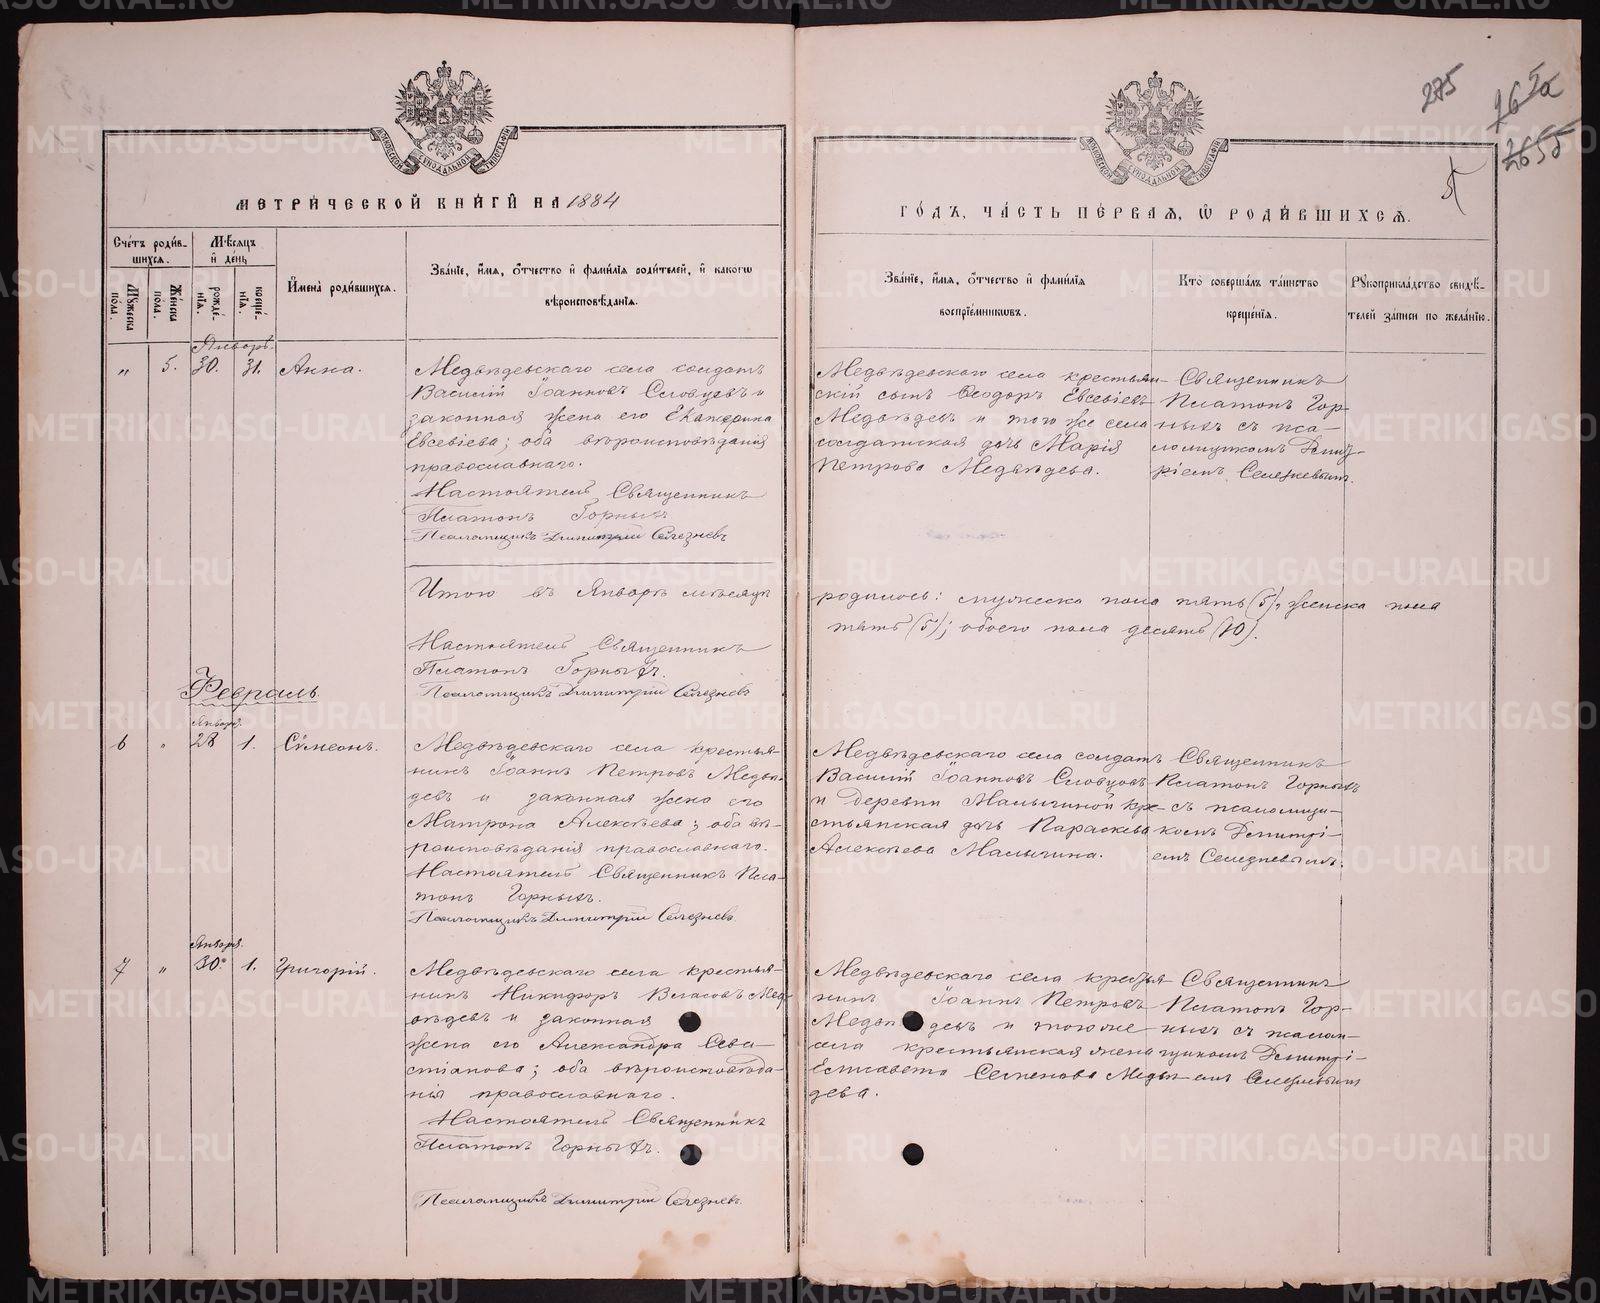 275
МОСКОВСКОЙ СѴНОДАЛЬНОЙ ТИПОГРАФІИ
МОСКОВСКОЙ СѴНОДАЛЬНОЙ ТИПОГРАФІИ
МЕТРИЧЕСКОЙ КНИГИ НА 1884
ГОДЪ, ЧАСТЬ ПЕРВАЯ, Ѡ РОДИВШИХСЯ.
Счетъ родив-
шихся.
Мѣсяцъ
и день
Мужеска пола.
Женска пола.
рожде-
нія.
креще-
нія.
Имена родившихся.
Званіе, имя, отчество и фамилія родителей, и какогѡ
вѣроисповѣданія.
Званіе, имя, отчество и фамилія
воспріемниковъ.
Кто совершалъ таинство
крещенія.
Рукоприкладство свидѣ-
телей записи по желанію.
Январь.
„ 5. 30. 31. Анна.
Медвѣдевскаго села солдатъ
Василій Іоанновъ Словцовъ и
законная жена его Екатерина
Евсевіева; оба вѣроисповѣданія
православнаго.
Настоятель Священникъ
Платонъ Горныхъ
Псаломщикъ Димитрій Селезневъ
Медвѣдевскаго села крестьян-
скій сынъ Ѳеодоръ Евсевіевъ
Медвѣдевъ и того же села
солдатская дочь Марія
Петрова Медвѣдева.
Священникъ
Платонъ Гор-
ныхъ съ пса-
ломщикомъ Димит-
ріемъ Селезневымъ.
Итого въ Январѣ мѣсяцѣ
родилось: мужеска пола пять (5), женска пола
пять (5); обоего пола десять (10).
Настоятель Священникъ
Платонъ Горныхъ.
Псаломщикъ Димитрій Селезневъ
Февраль.
Января.
6 „ 28 1. Сѵмеонъ.
Медвѣдевскаго села крестья-
нинъ Іоаннъ Петровъ Медвѣ-
девъ и законная жена его
Матрона Алексѣева; оба вѣ-
роисповѣданія православнаго.
Настоятель Священникъ Пла-
тонъ Горныхъ.
Псаломщикъ Димитрій Селезневъ
Медвѣдевскаго села солдатъ
Василій Іоанновъ Словцовъ
и деревни Малычиной кре-
стьянская дочь Параскева
Алексѣева Малычина.
Священникъ
Платонъ Горныхъ
съ псаломщи-
комъ Димитрі-
емъ Селезневымъ.
Января.
7 „ 30. 1. Григорій.
Медвѣдевскаго села крестья-
нинъ Никифоръ Власовъ Мед-
вѣдевъ и законная
жена его Александра Сева-
стіанова; оба вѣроисповѣда-
нія православнаго.
Настоятель Священникъ
Платонъ Горныхъ.
Псаломщикъ Димитрій Селезневъ.
Медвѣдевскаго села крестья-
нинъ Іоаннъ Петровъ
Медвѣдевъ и того же
села крестьянская жена
Елисавета Семенова Медвѣ-
дева.
Священникъ
Платонъ Гор-
ныхъ съ псалом-
щикомъ Димитрі-
емъ Селезневымъ
METRIKI.GASO-URAL.RU